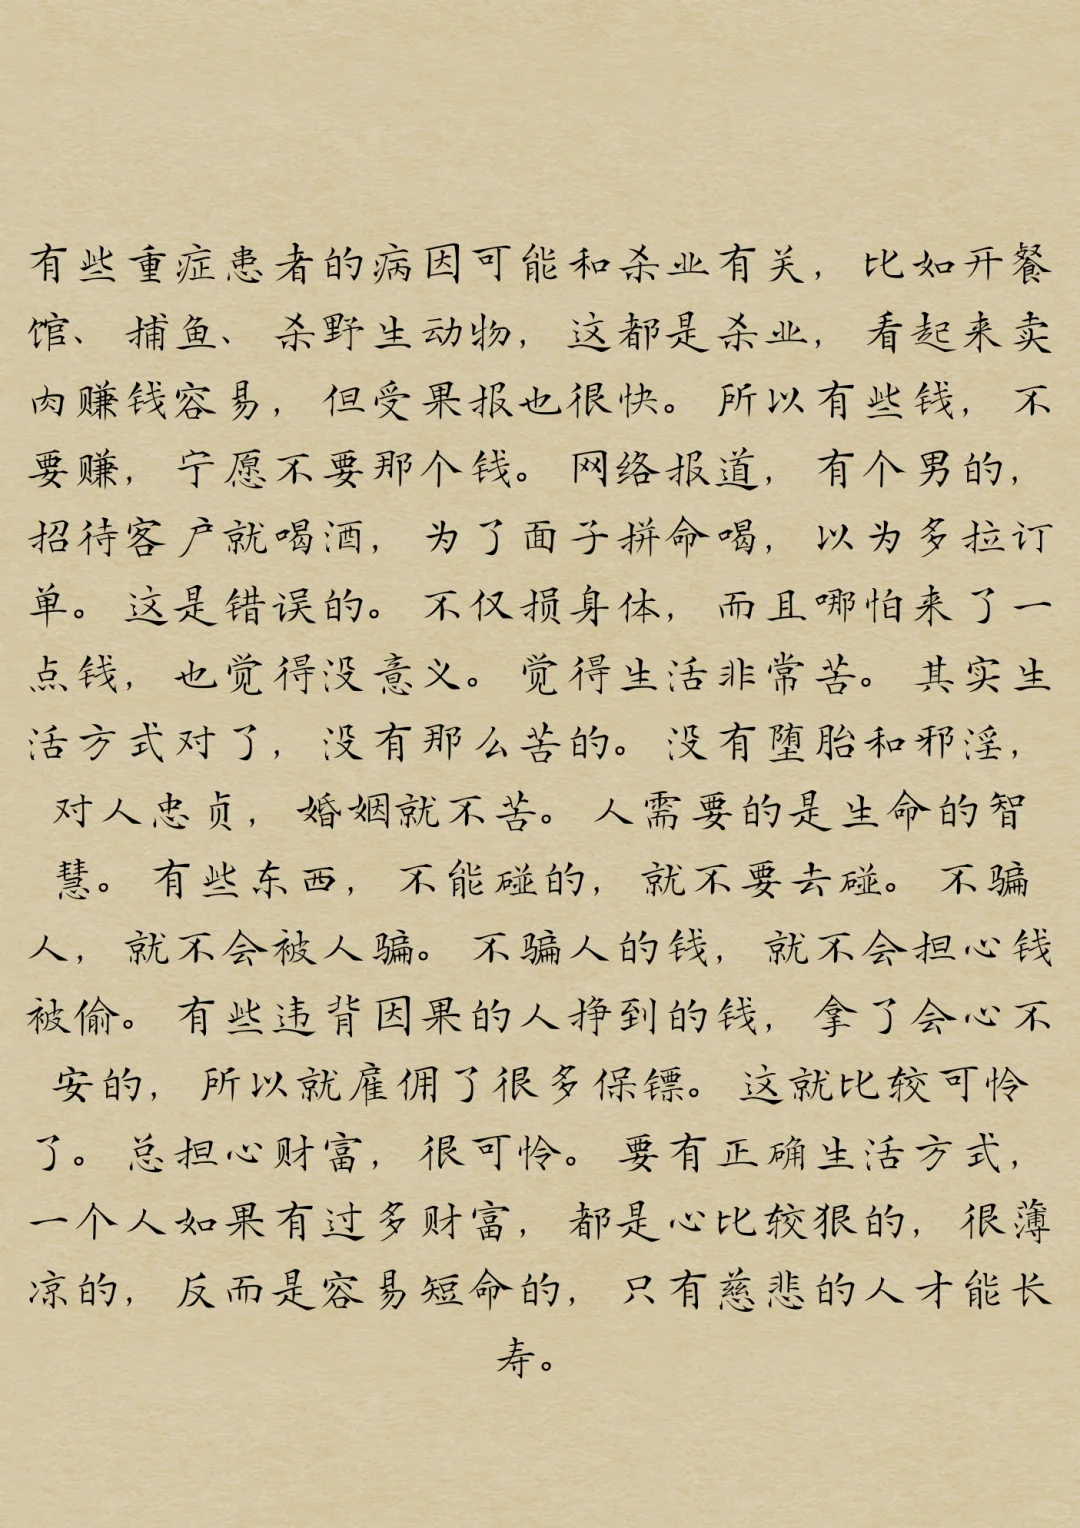 有些重症患者的病因可能和杀业有关，比如开餐
馆、捕鱼、杀野生动物，这都是杀业，看起来卖
肉赚钱容易，但受果报也很快。所以有些钱，不
要赚，宁愿不要那个钱。网络报道，有个男的，
招待客户就喝酒，为了面子拼命喝，以为多拉订
单。这是错误的。不仅损身体，而且哪怕来了一
点钱，也觉得没意义。觉得生活非常苦。其实生
活方式对了，没有那么苦的。没有堕胎和邪淫，
对人忠贞，婚姻就不苦。人需要的是生命的智
慧。有些东西，不能碰的，就不要去碰。不骗
人，就不会被人骗。不骗人的钱，就不会担心钱
被偷。有些违背因果的人挣到的钱，拿了会心不
安的，所以就雇佣了很多保镖。这就比较可怜
了。总担心财富，很可怜。要有正确生活方式，
一个人如果有过多财富，都是心比较狠的，很薄
凉的，反而是容易短命的，只有慈悲的人才能长
寿。